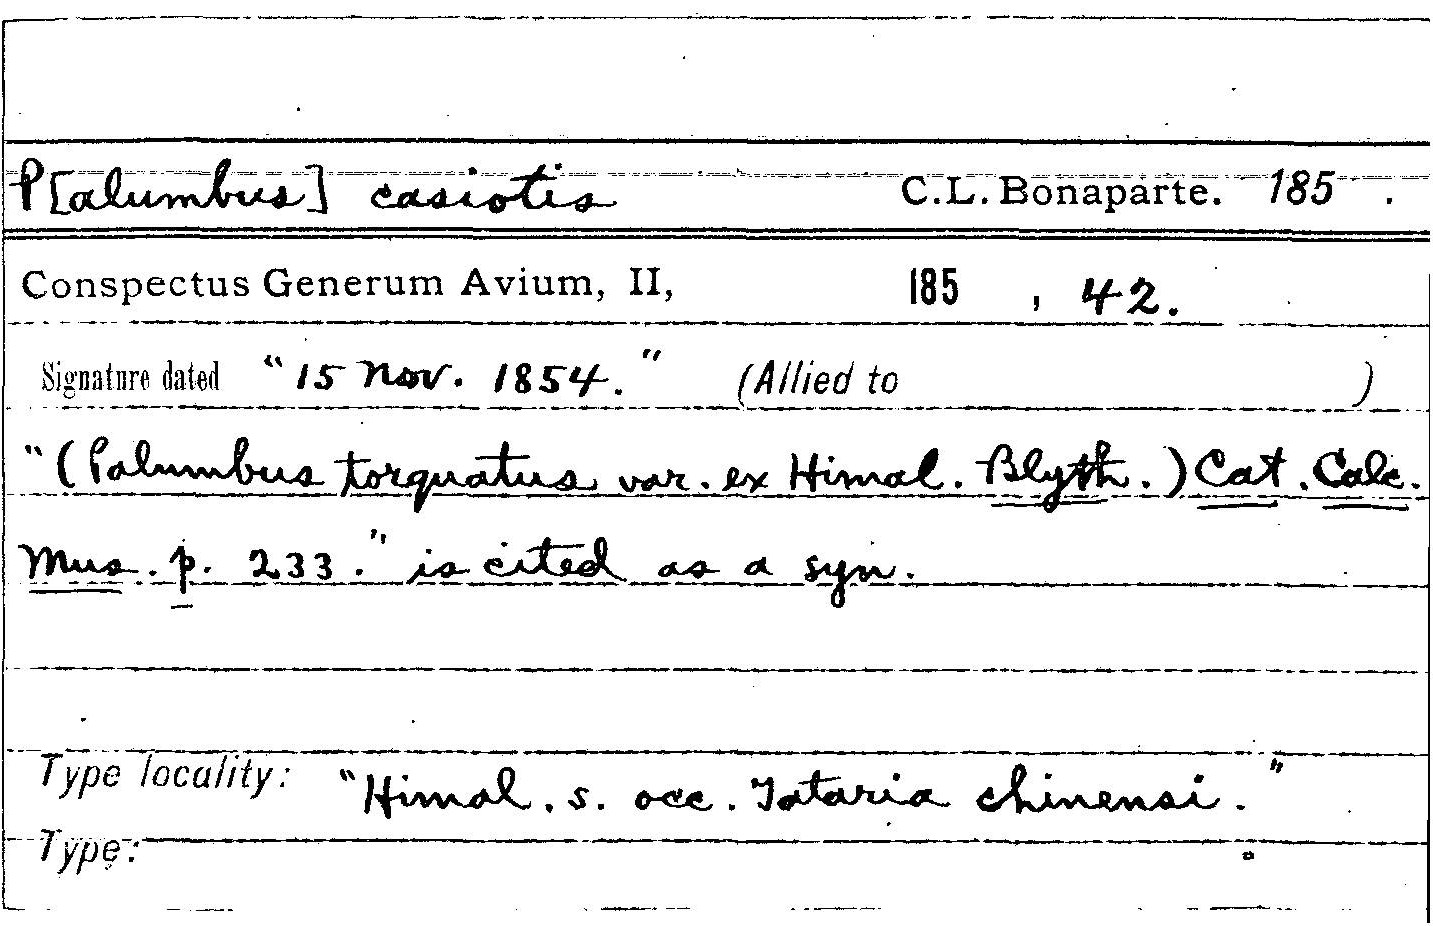 P[alumbus] casiotis C.L. Bonaparte. 185 .
Conspectus Generum Avium, II, 185 , 42.
Signature dated "15 Nov. 1854." (Allied to )
"(Palumbus torquatus var. ex Himal. Blyth.) Cat. Calc.
Mus. p. 233." is cited as a syn.
Type locality: "Himal. s. occ. Tataria chinensi."
Type: